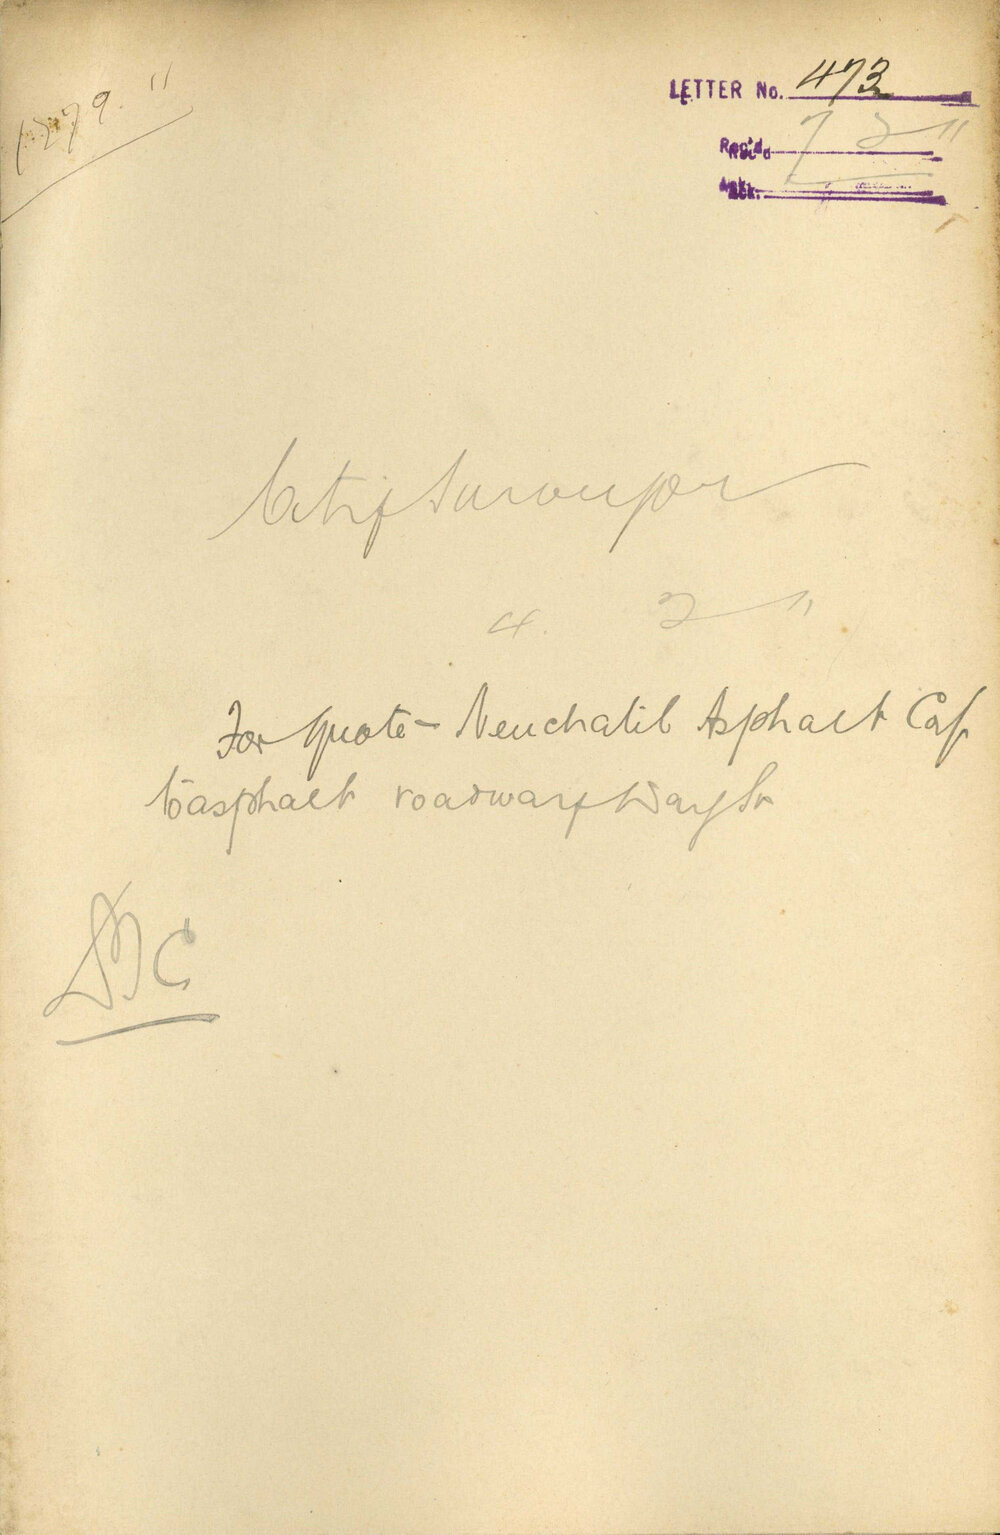 1279. 11
LETTER No. 473
Rec'd 7 3 11
Ack.
City Surveyor
4. 3 11
For quote - Neuchatel Asphalt Coy
to asphalt roadway Day St